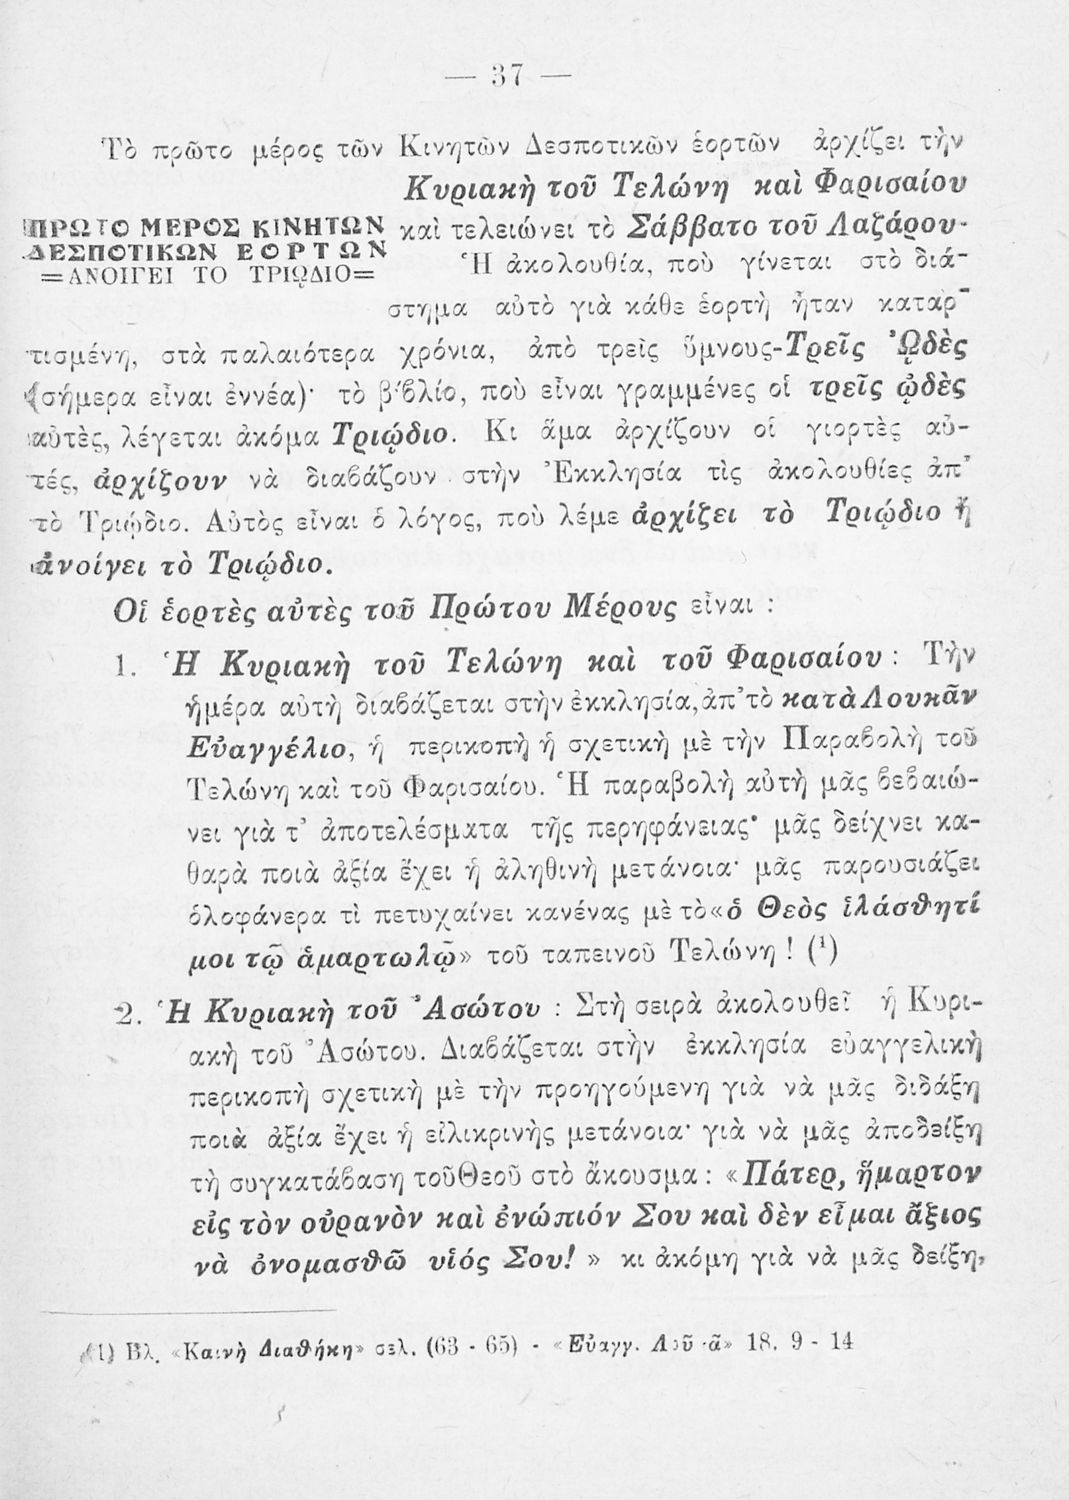 — 37 —
Τὸ πρῶτο μέρος τῶν Κινητῶν Δεσποτικῶν ἑορτῶν ἀρχίζει τὴν
Κυριακὴ τοῦ Τελώνη καὶ Φαρισαίου
ΠΡΩΤΟ ΜΕΡΟΣ ΚΙΝΗΤΩΝ
ΔΕΣΠΟΤΙΚΩΝ ΕΟΡΤΩΝ
=ΑΝΟΙΓΕΙ ΤΟ ΤΡΙῼΔΙΟ=
καὶ τελειώνει τὸ Σάββατο τοῦ Λαζάρου·
Ἡ ἀκολουθία, ποὺ γίνεται στὸ διά-
στημα αὐτὸ γιὰ κάθε ἑορτὴ ἦταν καταρ-
τισμένη, στὰ παλαιότερα χρόνια, ἀπὸ τρεῖς ὕμνους-Τρεῖς ᾨδὲς
(σήμερα εἶναι ἐννέα)· τὸ βιβλίο, ποὺ εἶναι γραμμένες οἱ τρεῖς ᾠδὲς
αὐτὲς, λέγεται ἀκόμα Τριῴδιο. Κι ἅμα ἀρχίζουν οἱ γιορτὲς αὐ-
τές, ἀρχίζουν νὰ διαβάζουν στὴν Ἐκκλησία τὶς ἀκολουθίες ἀπ'
τὸ Τριῴδιο. Αὐτὸς εἶναι ὁ λόγος, ποὺ λέμε ἀρχίζει τὸ Τριῴδιο ἢ
ἀνοίγει τὸ Τριῴδιο.
Οἱ ἑορτὲς αὐτὲς τοῦ Πρώτου Μέρους εἶναι :
1. Ἡ Κυριακὴ τοῦ Τελώνη καὶ τοῦ Φαρισαίου : Τὴν
ἡμέρα αὐτὴ διαβάζεται στὴν ἐκκλησία, ἀπ' τὸ κατὰ Λουκᾶν
Εὐαγγέλιο, ἡ περικοπὴ ἡ σχετικὴ μὲ τὴν Παραβολὴ τοῦ
Τελώνη καὶ τοῦ Φαρισαίου. Ἡ παραβολὴ αὐτὴ μᾶς βεβαιώ-
νει γιὰ τ' ἀποτελέσματα τῆς περηφάνειας· μᾶς δείχνει κα-
θαρὰ ποιὰ ἀξία ἔχει ἡ ἀληθινὴ μετάνοια· μᾶς παρουσιάζει
ὁλοφάνερα τὶ πετυχαίνει κανένας μὲ τὸ «ὁ Θεὸς ἱλάσθητί
μοι τῷ ἁμαρτωλῷ» τοῦ ταπεινοῦ Τελώνη ! (¹)
2. Ἡ Κυριακὴ τοῦ Ἀσώτου : Στὴ σειρὰ ἀκολουθεῖ ἡ Κυρι-
ακὴ τοῦ Ἀσώτου. Διαβάζεται στὴν ἐκκλησία εὐαγγελικὴ
περικοπὴ σχετικὴ μὲ τὴν προηγούμενη γιὰ νὰ μᾶς διδάξη
ποιὰ ἀξία ἔχει ἡ εἰλικρινὴς μετάνοια· γιὰ νὰ μᾶς ἀποδείξη
τὴ συγκατάβαση τοῦ Θεοῦ στὸ ἄκουσμα : «Πάτερ, ἥμαρτον
εἰς τὸν οὐρανὸν καὶ ἐνώπιόν Σου καὶ δὲν εἶμαι ἄξιος
νὰ ὀνομασθῶ υἱός Σου! » κι ἀκόμη γιὰ νὰ μᾶς δείξη,
(1) Βλ. «Καινὴ Διαθήκη» σελ. (63 - 65) - «Εὐαγγ. Λουκᾶ» 18. 9 - 14